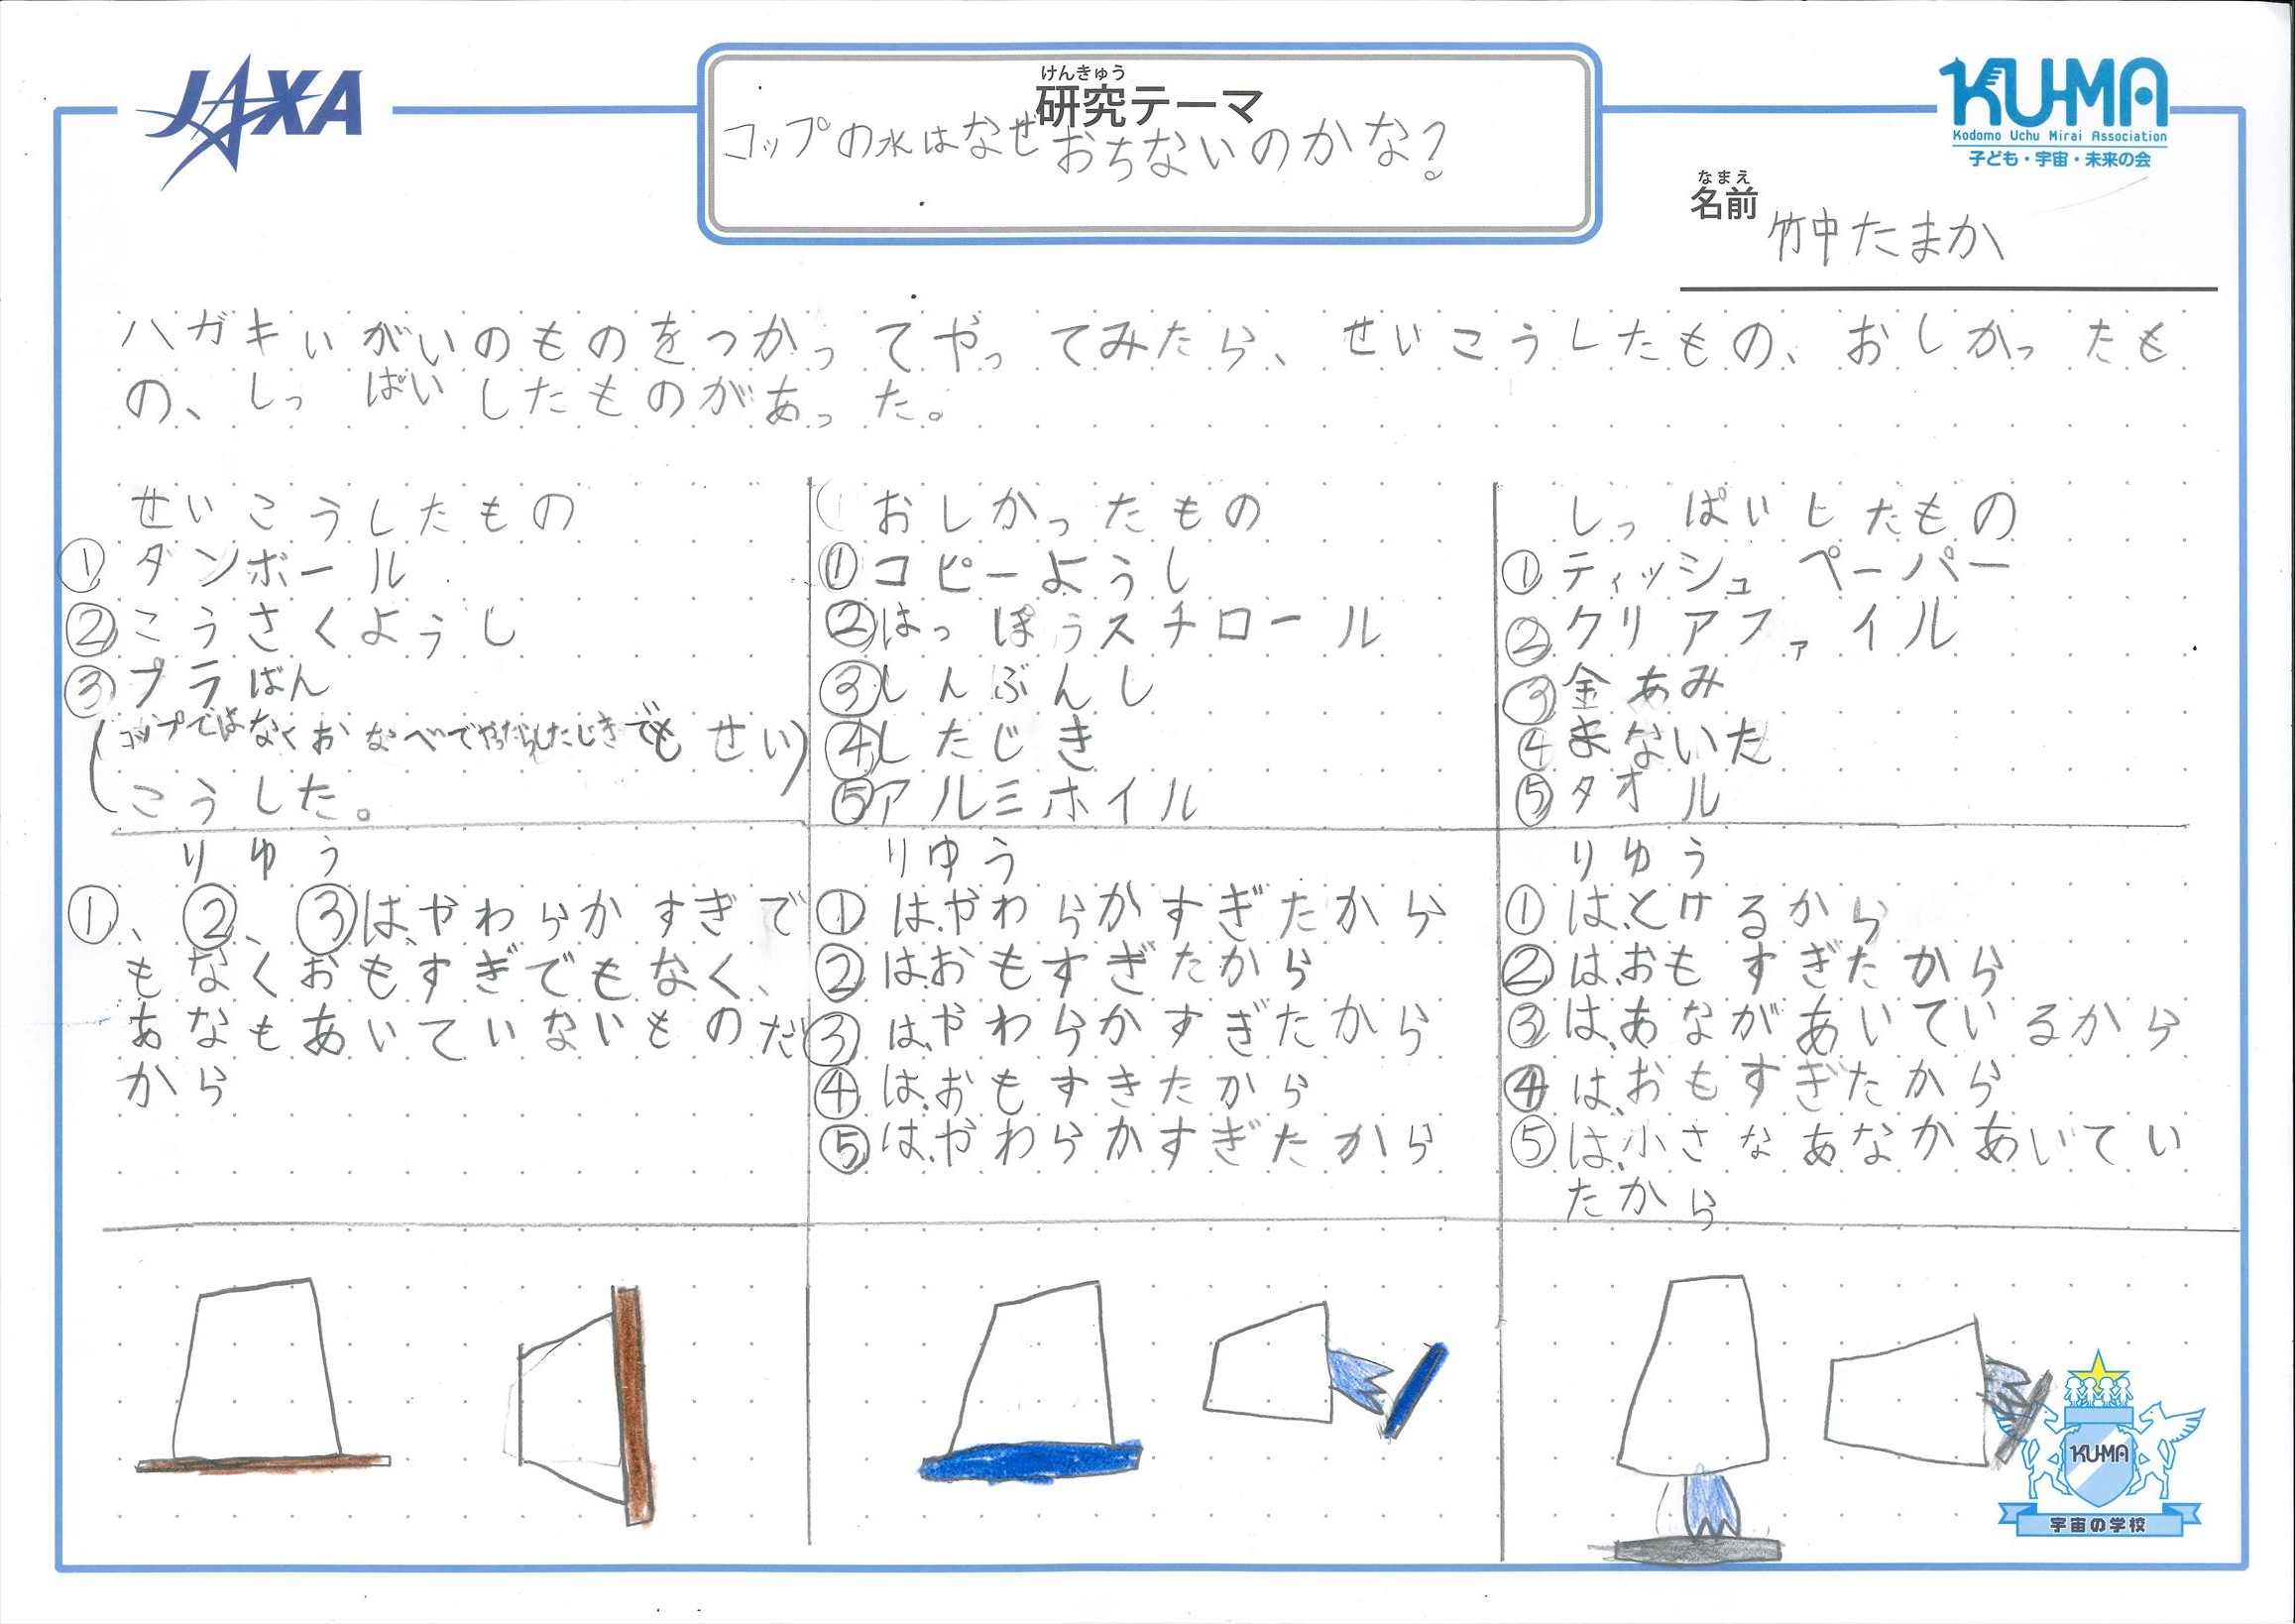 JAXA
けんきゅう
研究テーマ
コップの水はなぜおちないのかな?
KUMA
Kodomo Uchu Mirai Association
子ども・宇宙・未来の会
なまえ
名前
竹中たまか
ハガキいがいのものをつかってやってみたら、せいこうしたもの、おしかったも
の、しっぱいしたものがあった。
せいこうしたもの
①ダンボール
②こうさくようし
③プラばん
(コップではなくおなべでやったらしたじきでもせい
こうした。)
おしかったもの
①コピーようし
②はっぽうスチロール
③しんぶんし
④したじき
⑤アルミホイル
しっぱいしたもの
①ティッシュペーパー
②クリアファイル
③金あみ
④まないた
⑤タオル
りゆう
①、②、③は、やわらかすぎで
もなくおもすぎでもなく、
あなもあいていないものだ
から
りゆう
①は、やわらかすぎたから
②は、おもすぎたから
③は、やわらかすぎたから
④は、おもすきたから
⑤は、やわらかすぎたから
りゆう
①は、とけるから
②は、おもすぎたから
③は、あながあいているから
④は、おもすぎたから
⑤は、小さなあなかあいてい
たから
KUMA
宇宙の学校